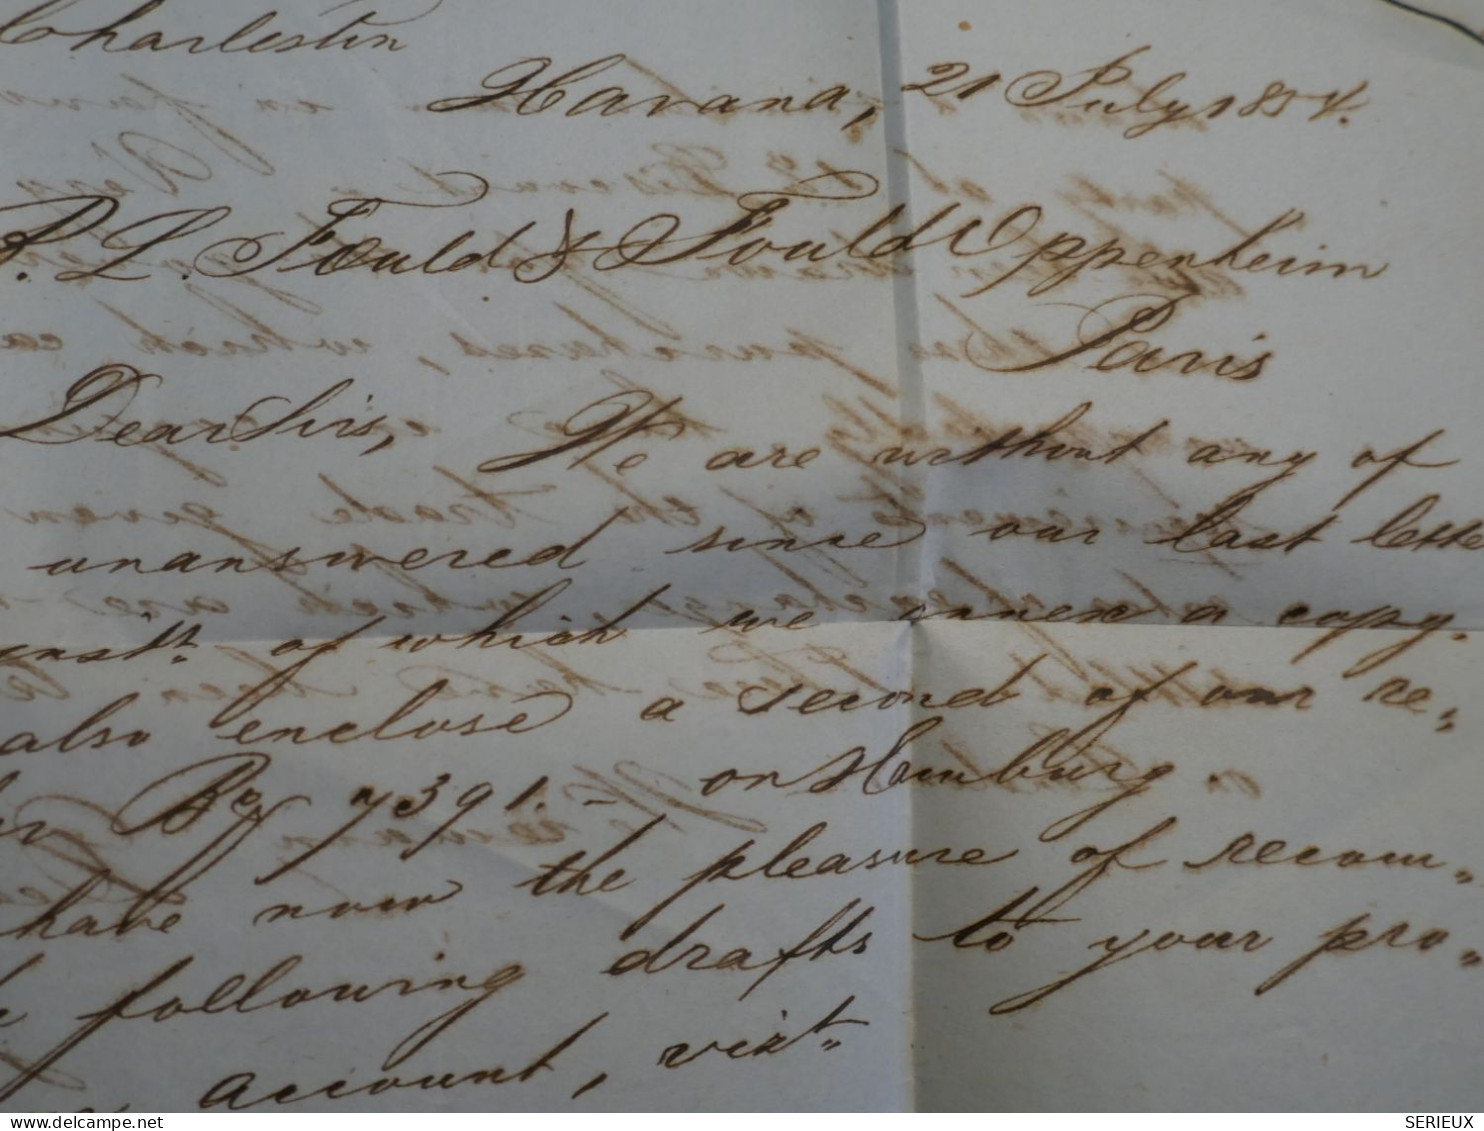 Charlestin
Havana, 21 July 1854.
B. L. Fould & Fould Oppenheim
Paris
Dear Sirs, We are without any of
unanswered since our last lette
inst.t of which we annex a copy.
also enclose a second of our re„
Bco 7391.- on Hamburg.
have now the pleasure of recom„
following drafts to your pro„
account, vizt„
SERIEUX